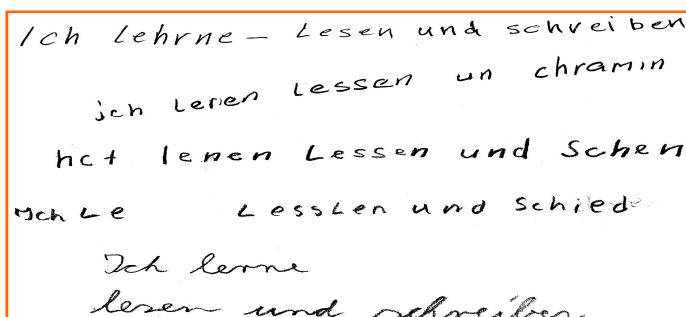 Ich Lehrne – Lesen und schreiben
ich Leren Lessen un chramin
hct lenen Lessen und Schen
Ich Le Lessten und Schied
Ich lerne
lesen und schreiben